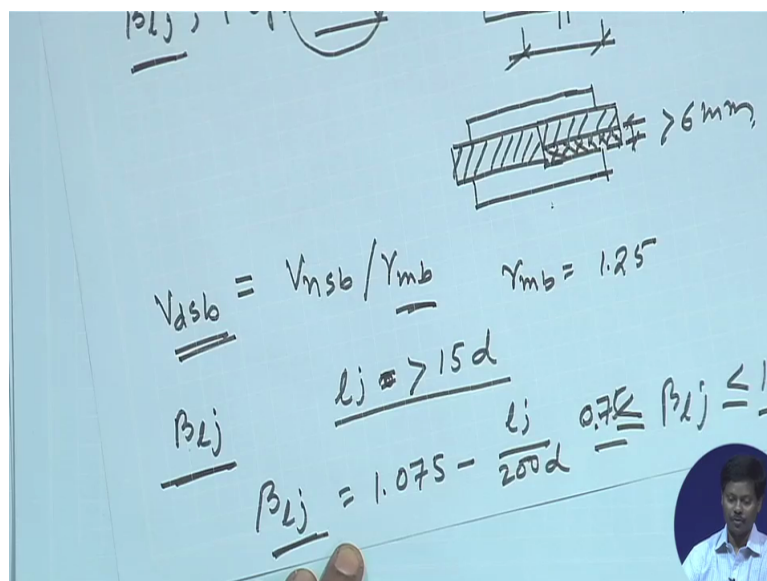 βlj,
>6mm,
Vdsb = Vnsb/γmb γmb = 1.25
βlj lj > 15d
βlj = 1.075 - lj/200d 0.75 ≤ βlj ≤ 1